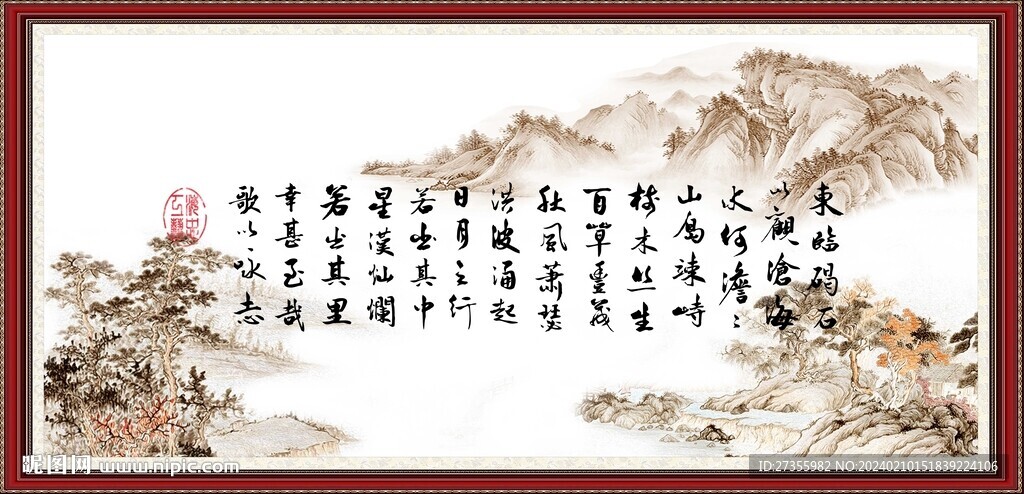 東臨碣石
以觀滄海
水何澹〻
山島竦峙
樹木丛生
百草豐茂
秋風蕭瑟
洪波涌起
日月之行
若出其中
星漢灿爛
若出其里
幸甚至哉
歌以咏志
昵图网 www.nipic.com
ID:27355982 NO:20240210151839224106